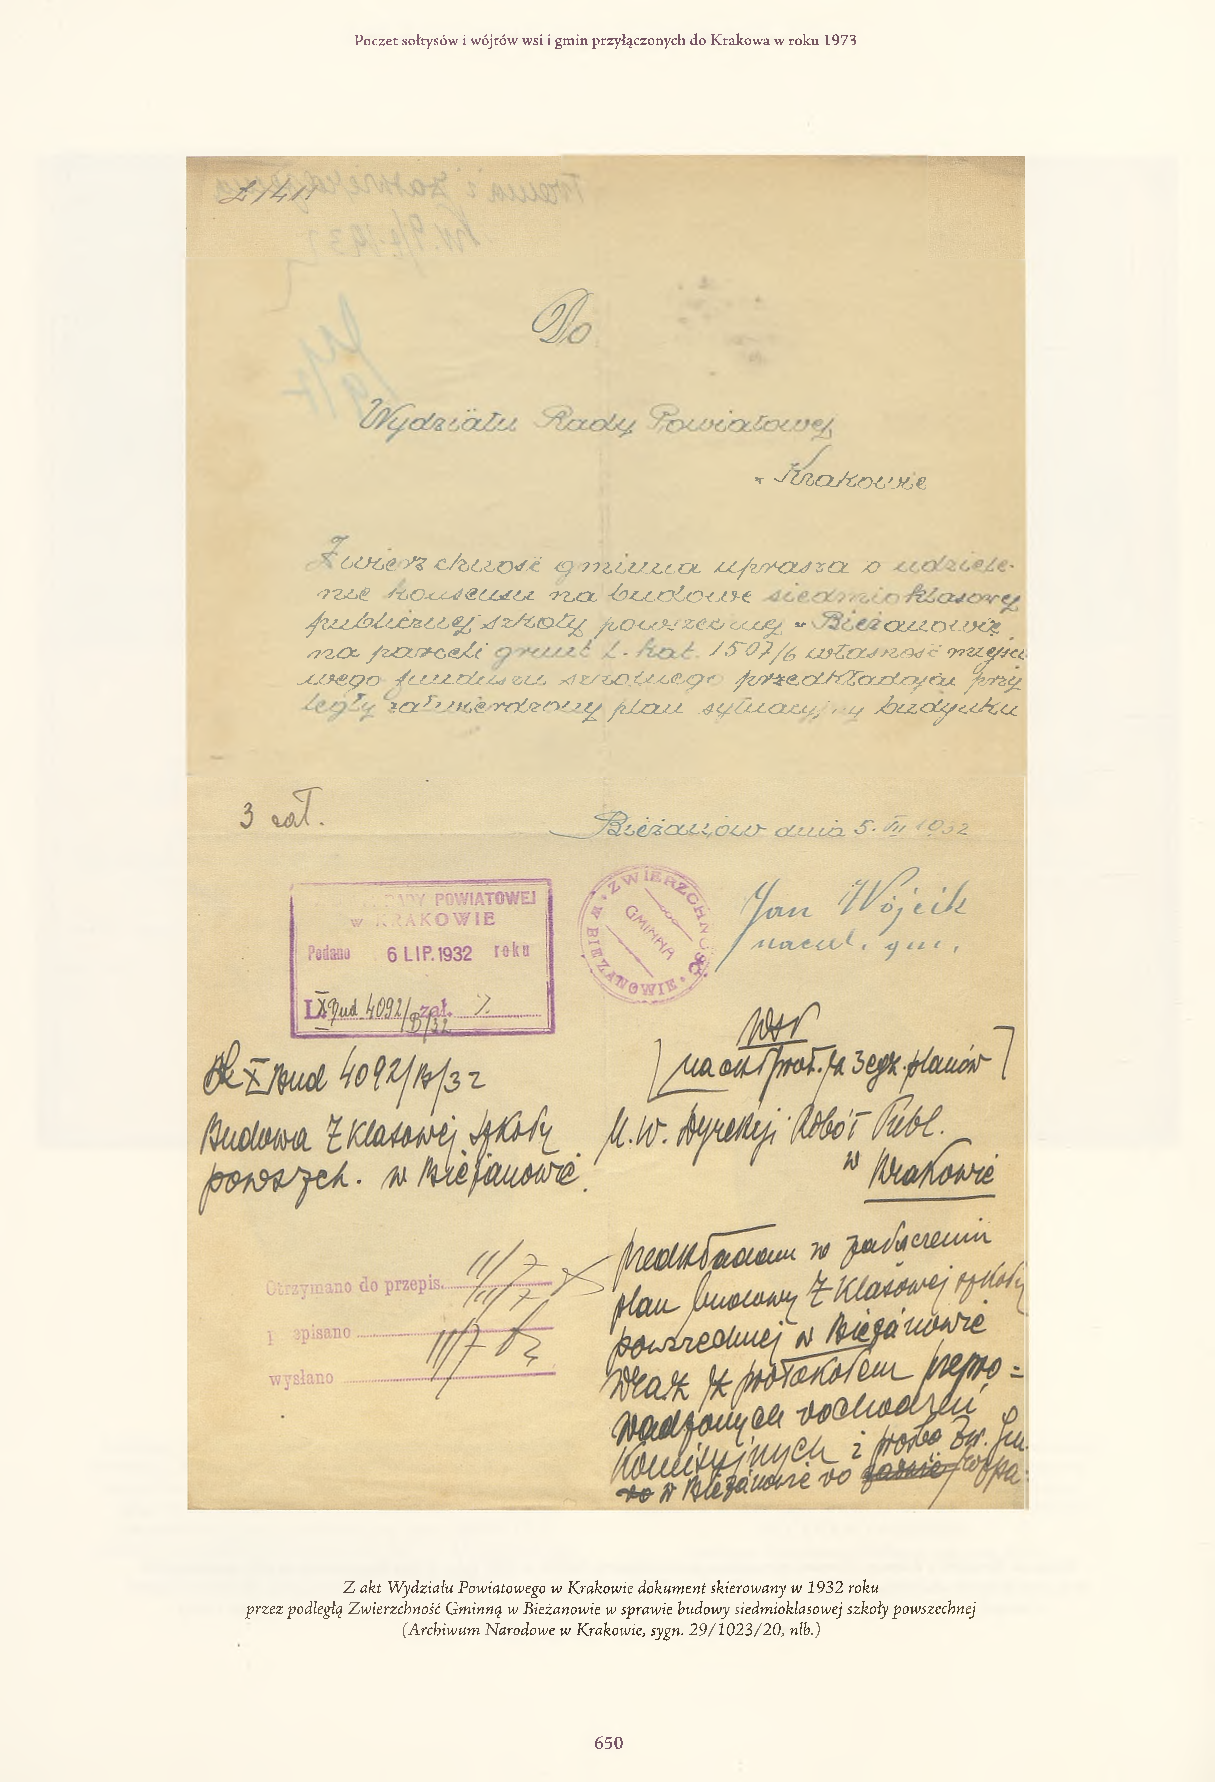 Poczet sołtysów i wójtów wsi i gmin przyłączonych do Krakowa w roku 1973
Do
Wydziału Rady Powiatowej
w Krakowie
Zwierzchność gminna uprasza o udziele-
nie konsensu na budowę siedmioklasowej
publicznej szkoły powszechnej w Bieżanowie
na parceli grunt L. kat. 1507/6 własność miejsco
wego funduszu szkolnego przedkładając przy
legły zatwierdzony plan sytuacyjny budynku
3 zał.
Bieżanów dnia 5. VII 1932
RADY POWIATOWEJ
w KRAKOWIE
Podano 6 LIP. 1932 roku
L. X Bud 4092/B/32 zał.
ZWIERZCHNOŚĆ GMINNA W BIEŻANOWIE
Jan Wójcik
nacz. gm.
X Bud 4092/B/32
Budowa 7 klasowej szkoły
powszech. w Bieżanowie
3 egz. planów
Dyrekcji Robót Publ.
w Krakowie
Otrzymano do przepis. 11/7
episano 11/7
wysłano
przedkładam w załączeniu
plan budowy 7 klasowej szkoły
powszechnej w Bieżanowie
wraz z protokołem przepro=
wadzonych dochodzeń
komisyjnych i prośbą Zw. Gm.
w Bieżanowie do
Z akt Wydziału Powiatowego w Krakowie dokument skierowany w 1932 roku
przez podległą Zwierzchność Gminną w Bieżanowie w sprawie budowy siedmioklasowej szkoły powszechnej
(Archiwum Narodowe w Krakowie, sygn. 29/1023/20, nlb.)
650